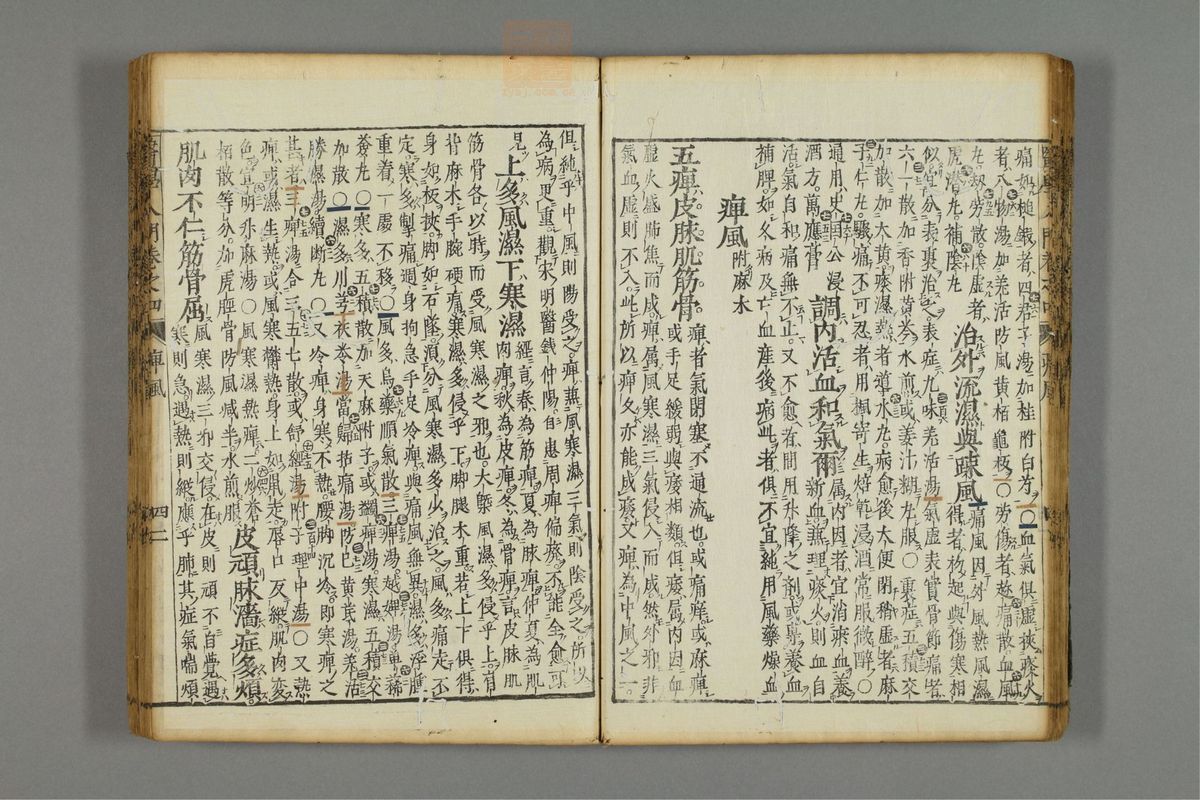 痛如槌鍛者四君子湯加桂附白芍○血氣俱虛挾痰火
者八物湯加羌活防風黃栢龜板○勞傷者趁痛散血風
九劫勞散陰虛者
虎潛九補陰九 治外流濕與疎風 痛風因外風熱風濕
得者初起與傷寒相
似宜分表裏治之表症九味羌活湯氣虛表實骨節痛者
六一散加香附黃芩水煎或姜汁糊九服○裏症五積交
加散加大黃痰濕熱者導水九病愈後大便閉秘虛者麻
子仁九驟痛不可忍者用楓寄生焙乾浸酒常服微醉○
通用史囯公浸
酒方萬應膏 調內活血和氣爾 屬內因者宜消瘀血養
新血兼理痰火則血自
活氣自和痛無不止又不愈者間用升降之劑或專養血
補脾如久病及亡血產後病此者俱不宜純用風藥燥血
痺風附麻木
五痺皮脉肌筋骨 痺者氣閉塞不通流也或痛痒或麻痺
或手足緩弱與痿相類但痿屬內因血
虛火盛肺焦而成痺屬風寒濕三氣侵入而成然外邪非
氣血虛則不入此所以痺久亦能成痿又痺為中風之一
但純乎中風則陽受之痺兼風寒濕三氣則陰受之所以
為病更重觀宋明醫錢仲陽自患周痺偏廢不能全愈可
見 上多風濕下寒濕 經言春為筋痺夏為脉痺仲夏為肌
肉痺秋為皮痺冬為骨痺言皮脉肌
筋骨各以時而受風寒濕之邪也大槩風濕多侵乎上肩
背麻木手腕硬痛寒濕多侵乎下脚腿木重若上下俱得
身如板挾脚如石墜須分風寒濕多少治之風多痛走不
定寒多掣痛週身拘急手足冷痺與痛風無異濕多浮腫
重着一處不移○風多烏藥順氣散三痺湯越婢湯單豨
薟九○寒多五積散加天麻附子或蠲痺湯寒濕五積交
加散○濕多川芎茯苓湯當歸拈痛湯防己黃芪湯羌活
勝濕湯續斷九○又冷痺身寒不熱腰脚沉冷即寒痺之
甚者三痺湯合三五七散或舒經湯附子理中湯○又熱
痺或濕生熱或風寒欝熱身上如鼠走唇口反縱肌肉變
色宜明升麻湯○風寒濕熱痺二炒蒼
栢散等分加虎脛骨防風減半水煎服 皮頑脉濇症多煩
肌肉不仁筋骨屈 風寒濕三邪交侵在皮則頑不自覺遇
寒則急遇熱則縱應乎肺其症氣喘煩
痺風
四二